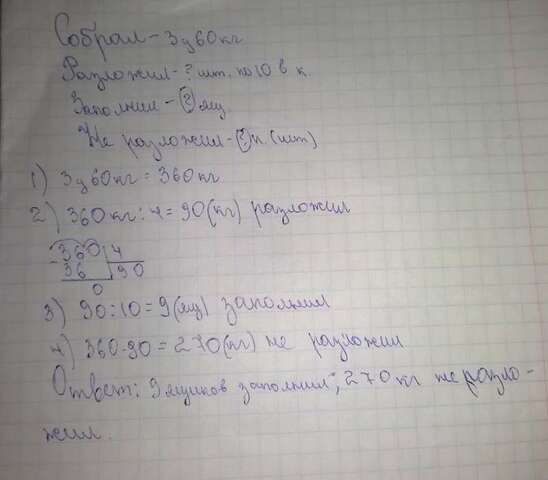 Собрал - 3ц60кг
Разложил - ? шт. по 10 в к.
Заполнил - ? ящ.
Не разложил - ? к. (шт)
1) 3ц60кг = 360кг
2) 360кг : 4 = 90(кг) разложил
- 360 4
36 90
0
3) 90 : 10 = 9(ящ) заполнил
4) 360-90 = 270(кг) не разложил
Ответ: 9 ящиков заполнил; 270 кг не разло-
жил.